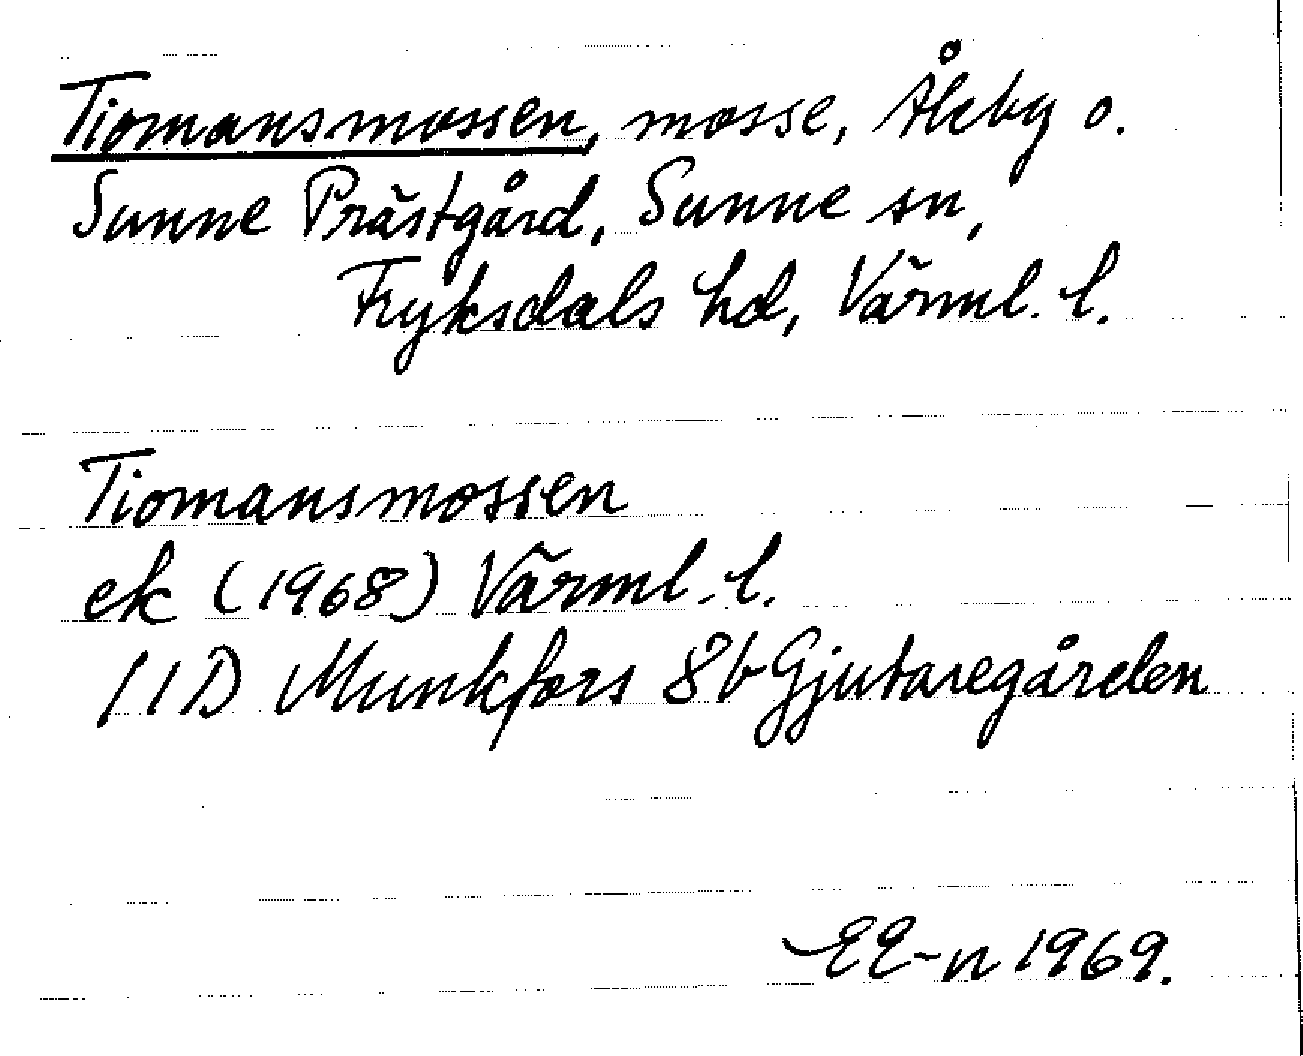 Tiomansmossen, mosse, Åleby o.
Sunne Prästgård, Sunne sn,
Fryksdals hd, Värml. l.
Tiomansmossen
ek (1968) Värml. l.
11D Munkfors 8b Gjutaregården
EE-n 1969.